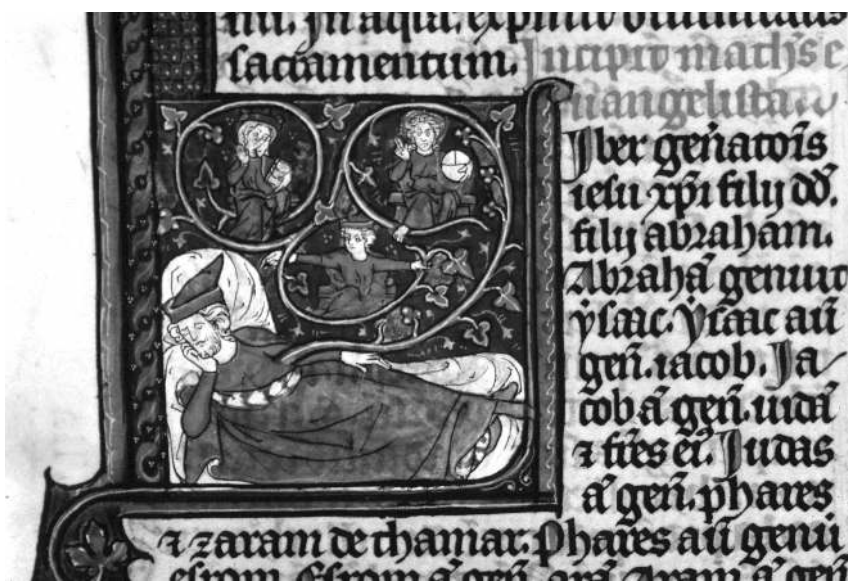 In aqua. exprimit
sacramentum. Incipit math's e
uangelista
Iber gen̄atōis
iesu xp̄i filij dd̄.
filij abraham.
Abrahā genuit
ẏsaac. ẏsaac aū
gen̄. iacob. Ja
cob ā gen̄. iudā
⁊ fr̄es ei᷒. Judas
ā gen̄. phares
⁊ zaram de thamar. Phares aū genū
esrom. Esrom ā gen̄. arā. Aram ā gen̄